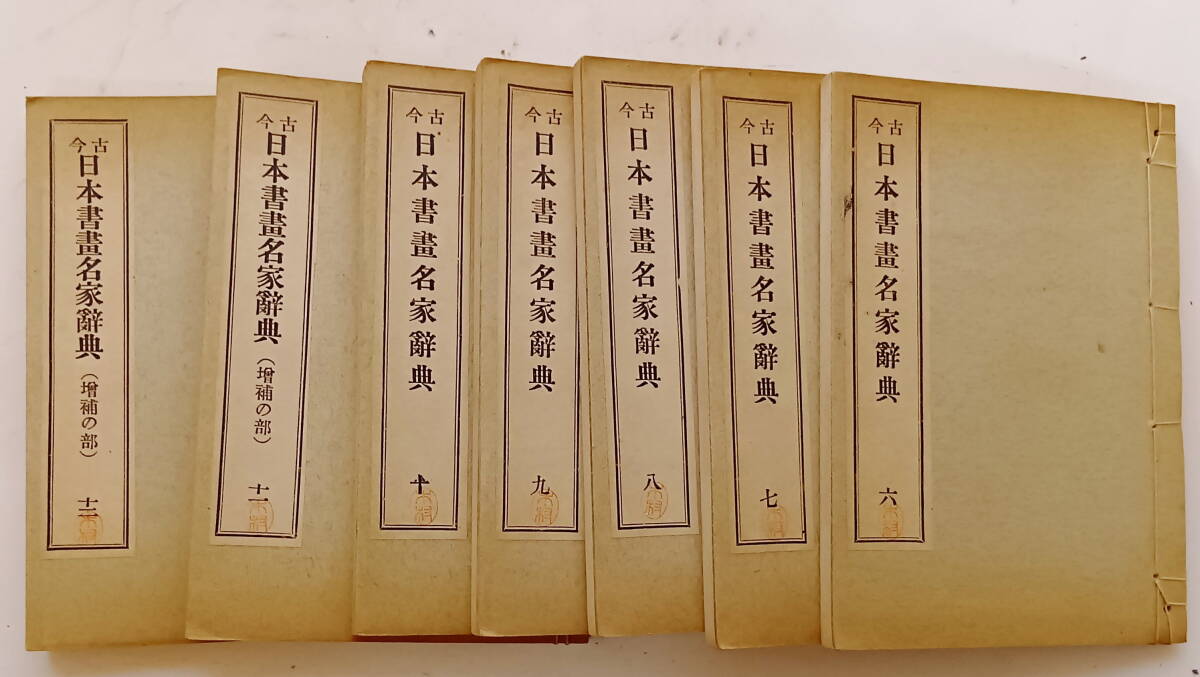 古今
日本書畫名家辭典
六
古今
日本書畫名家辭典
七
古今
日本書畫名家辭典
八
古今
日本書畫名家辭典
九
古今
日本書畫名家辭典
十
古今
日本書畫名家辭典（增補の部）
十一
古今
日本書畫名家辭典（增補の部）
十二